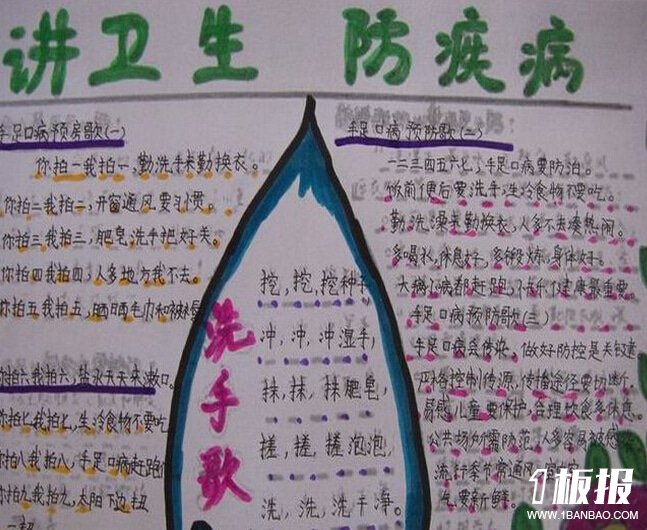 讲卫生 防疾病
手足口病预房歌(一)
你拍一我拍一,勤洗手来勤换衣。
你拍二我拍二,开窗通风要习惯。
你拍三我拍三,肥皂洗手把好关。
你拍四我拍四,人多地方我不去。
你拍五我拍五,晒晒毛巾和被
你拍六我拍六,盐水天天来漱口。
你拍七我拍七,生冷食物不要吃
你拍八我拍八,手足口病赶跑
你拍九我拍九,太阳下边扭
一扭
洗手歌
挖,挖,挖种
冲,冲,冲湿手,
抹,抹,抹肥皂,
搓,搓,搓泡泡,
洗,洗,洗干净。
手足口病预防歌(二)
一二三四五六七,手足口病要防治。
饭前便后要洗手,生冷食物不要吃。
勤洗澡来勤换衣,人多不去凑热闹。
多喝水,休息好,多锻炼,身体好。
大病小病都赶跑,健康最重要。
手足口病预防歌(三)
手足口病会传染,做好防控是关键
严格控制传源,传播途径要切断。
易感儿童要保护,合理饮食多休息。
公共场所需防范,人多容易被感
流行季节常通风
气要新鲜。
1板报
WWW.1BANBAO.COM